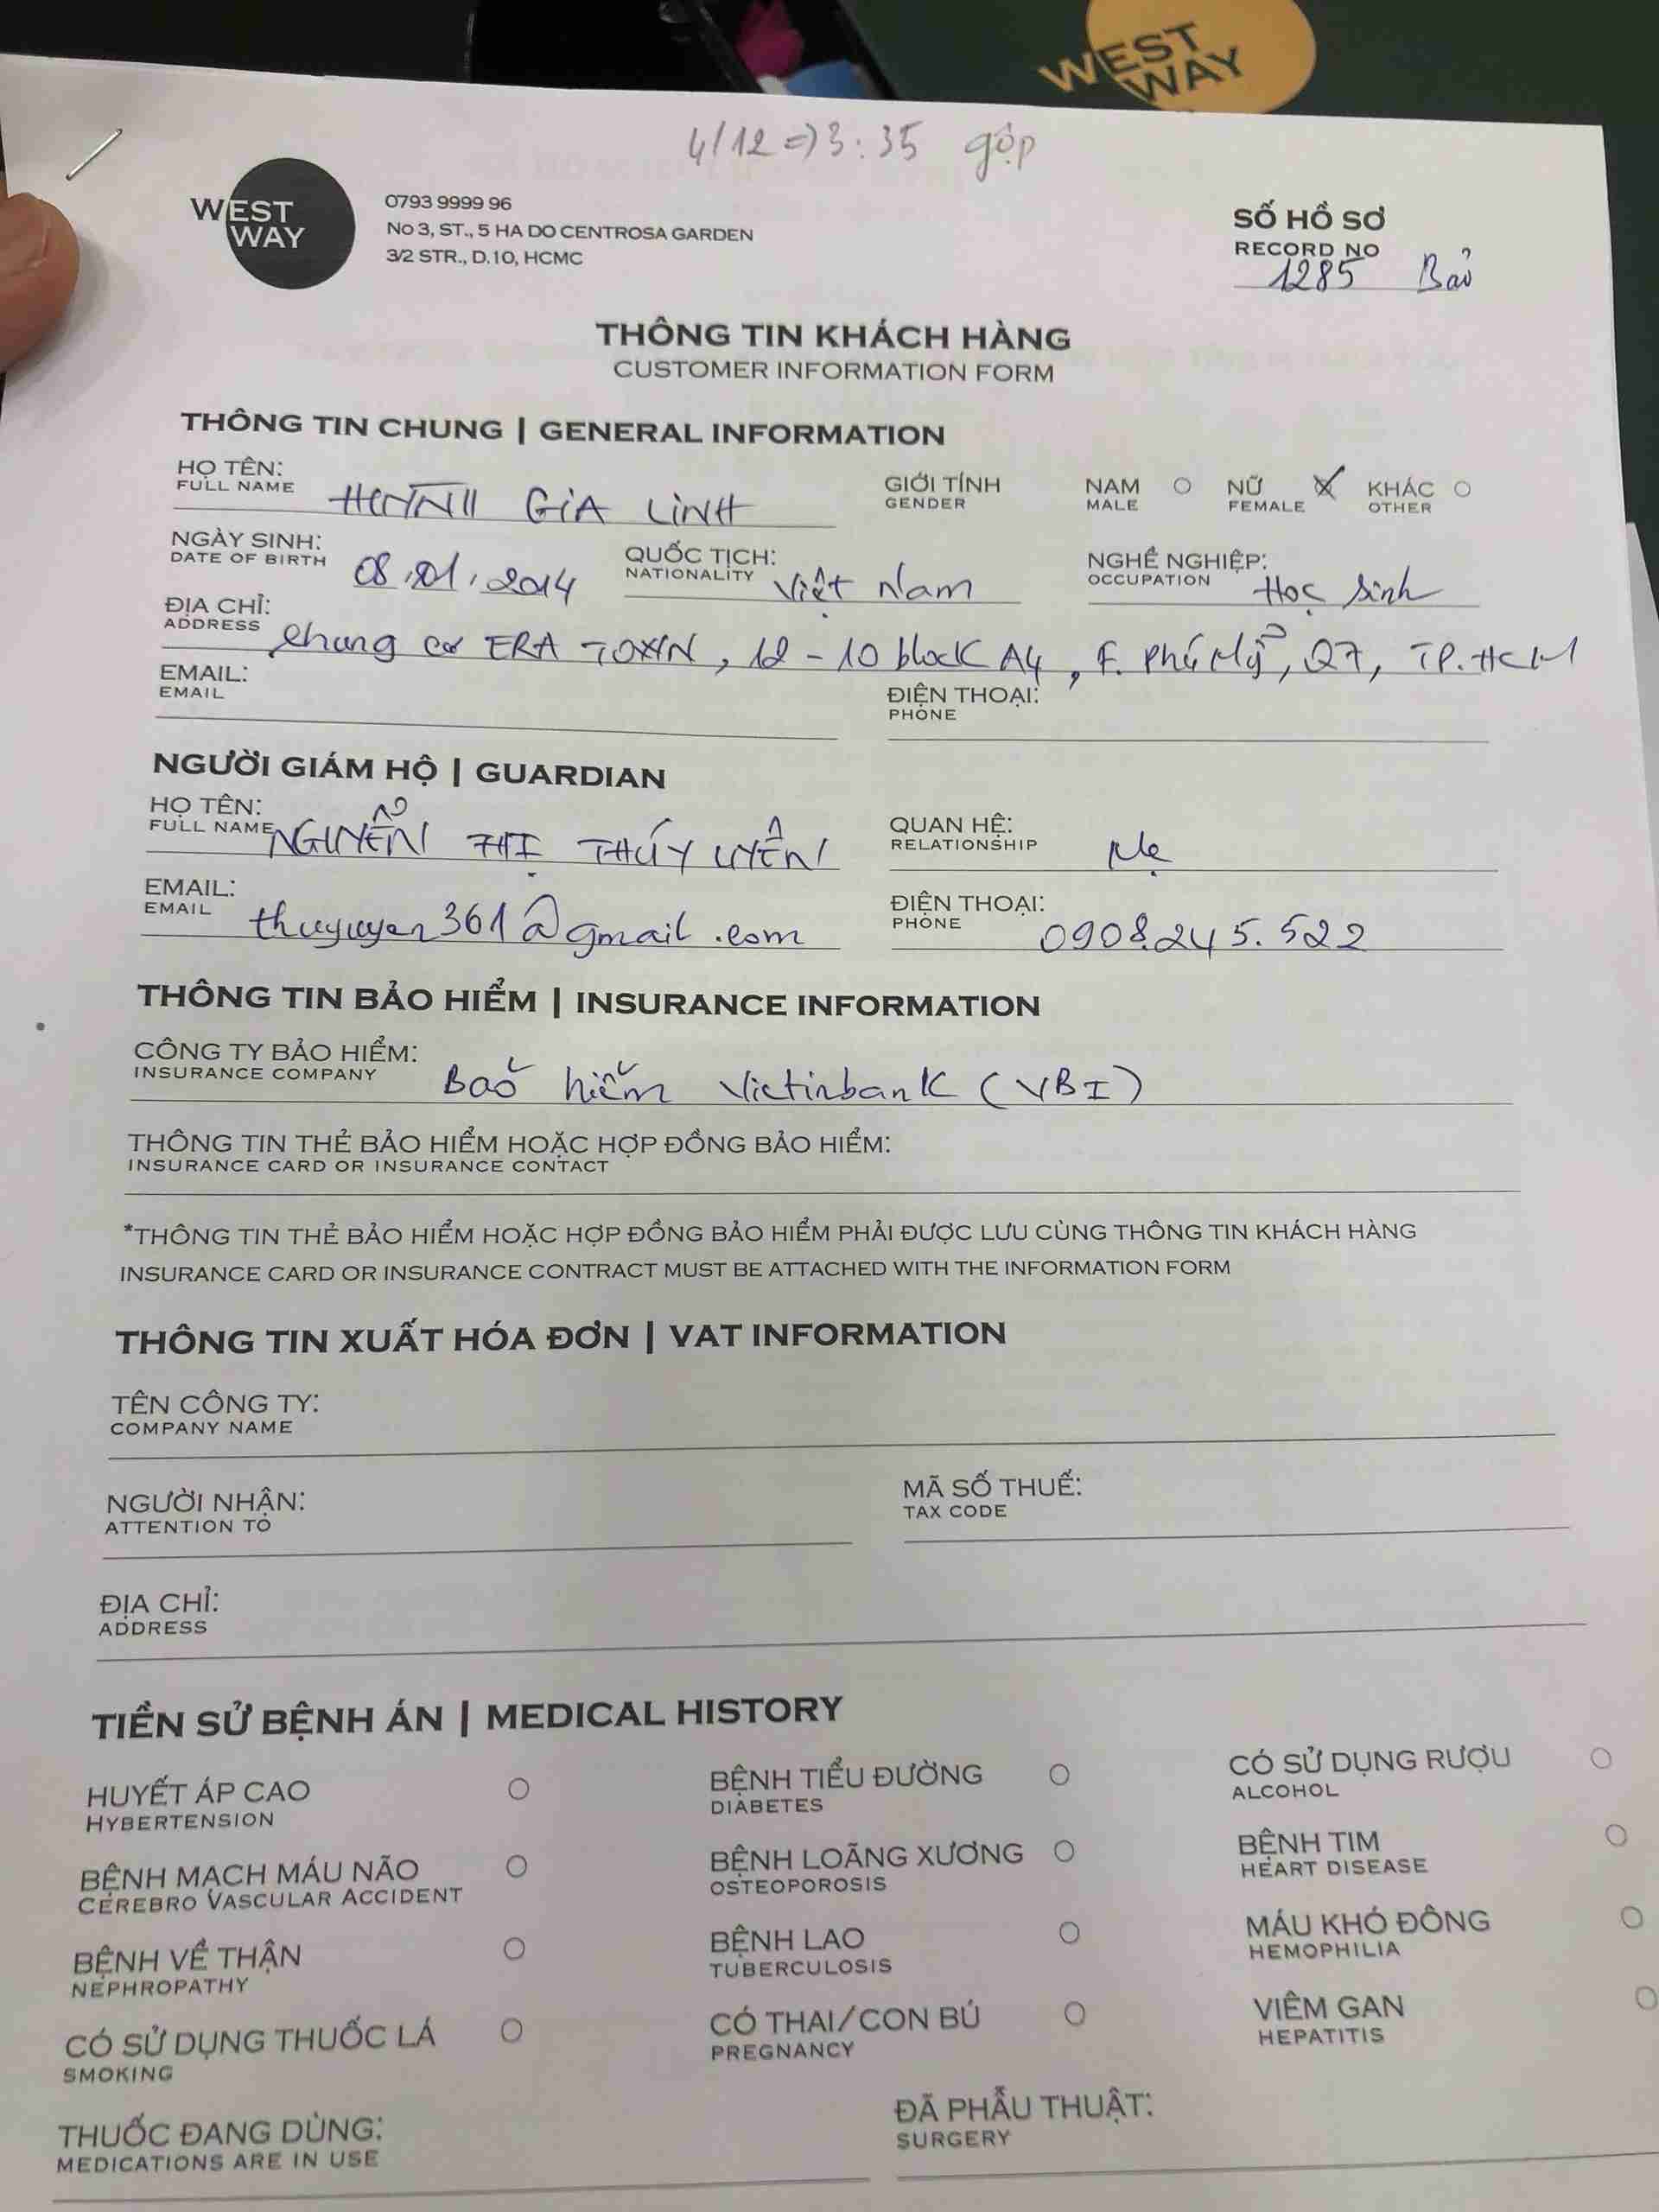 WEST
WAY
4/12 => 3:35 gộp
WEST
WAY
0793 9999 96
No 3, ST., 5 HA DO CENTROSA GARDEN
3/2 STR., D.10, HCMC
SỐ HỒ SƠ
RECORD NO
1285 Bảo
THÔNG TIN KHÁCH HÀNG
CUSTOMER INFORMATION FORM
THÔNG TIN CHUNG | GENERAL INFORMATION
HỌ TÊN:
FULL NAME
GIA LINH
GIỚI TÍNH
GENDER
NAM
MALE
NỮ
FEMALE
KHÁC
OTHER
NGÀY SINH:
DATE OF BIRTH
08.01.2014
QUỐC TỊCH:
NATIONALITY
Việt Nam
NGHỀ NGHIỆP:
OCCUPATION
Học sinh
ĐỊA CHỈ:
ADDRESS
chung cư ERA TOXIN, 12-10 block A4, F. Phú Mỹ, Q7, TP.HCM
EMAIL:
EMAIL
ĐIỆN THOẠI:
PHONE
NGƯỜI GIÁM HỘ | GUARDIAN
HỌ TÊN:
FULL NAME
NGUYỄN THỊ THÚY UYÊN
QUAN HỆ:
RELATIONSHIP
Mẹ
EMAIL:
EMAIL
thuyuyen361@gmail.com
ĐIỆN THOẠI:
PHONE
0908.245.522
THÔNG TIN BẢO HIỂM | INSURANCE INFORMATION
CÔNG TY BẢO HIỂM:
INSURANCE COMPANY
Bảo hiểm Victinbank (VBI)
THÔNG TIN THẺ BẢO HIỂM HOẶC HỢP ĐỒNG BẢO HIỂM:
INSURANCE CARD OR INSURANCE CONTACT
*THÔNG TIN THẺ BẢO HIỂM HOẶC HỢP ĐỒNG BẢO HIỂM PHẢI ĐƯỢC LƯU CÙNG THÔNG TIN KHÁCH HÀNG
INSURANCE CARD OR INSURANCE CONTRACT MUST BE ATTACHED WITH THE INFORMATION FORM
THÔNG TIN XUẤT HÓA ĐƠN | VAT INFORMATION
TÊN CÔNG TY:
COMPANY NAME
NGƯỜI NHẬN:
ATTENTION TO
MÃ SỐ THUẾ:
TAX CODE
ĐỊA CHỈ:
ADDRESS
TIỀN SỬ BỆNH ÁN | MEDICAL HISTORY
HUYẾT ÁP CAO
HYBERTENSION
BỆNH TIỂU ĐƯỜNG
DIABETES
CÓ SỬ DỤNG RƯỢU
ALCOHOL
BỆNH MẠCH MÁU NÃO
CEREBRO VASCULAR ACCIDENT
BỆNH LOÃNG XƯƠNG
OSTEOPOROSIS
BỆNH TIM
HEART DISEASE
BỆNH VỀ THẬN
NEPHROPATHY
BỆNH LAO
TUBERCULOSIS
MÁU KHÓ ĐÔNG
HEMOPHILIA
CÓ SỬ DỤNG THUỐC LÁ
SMOKING
CÓ THAI/CON BÚ
PREGNANCY
VIÊM GAN
HEPATITIS
THUỐC ĐANG DÙNG:
MEDICATIONS ARE IN USE
ĐÃ PHẪU THUẬT:
SURGERY